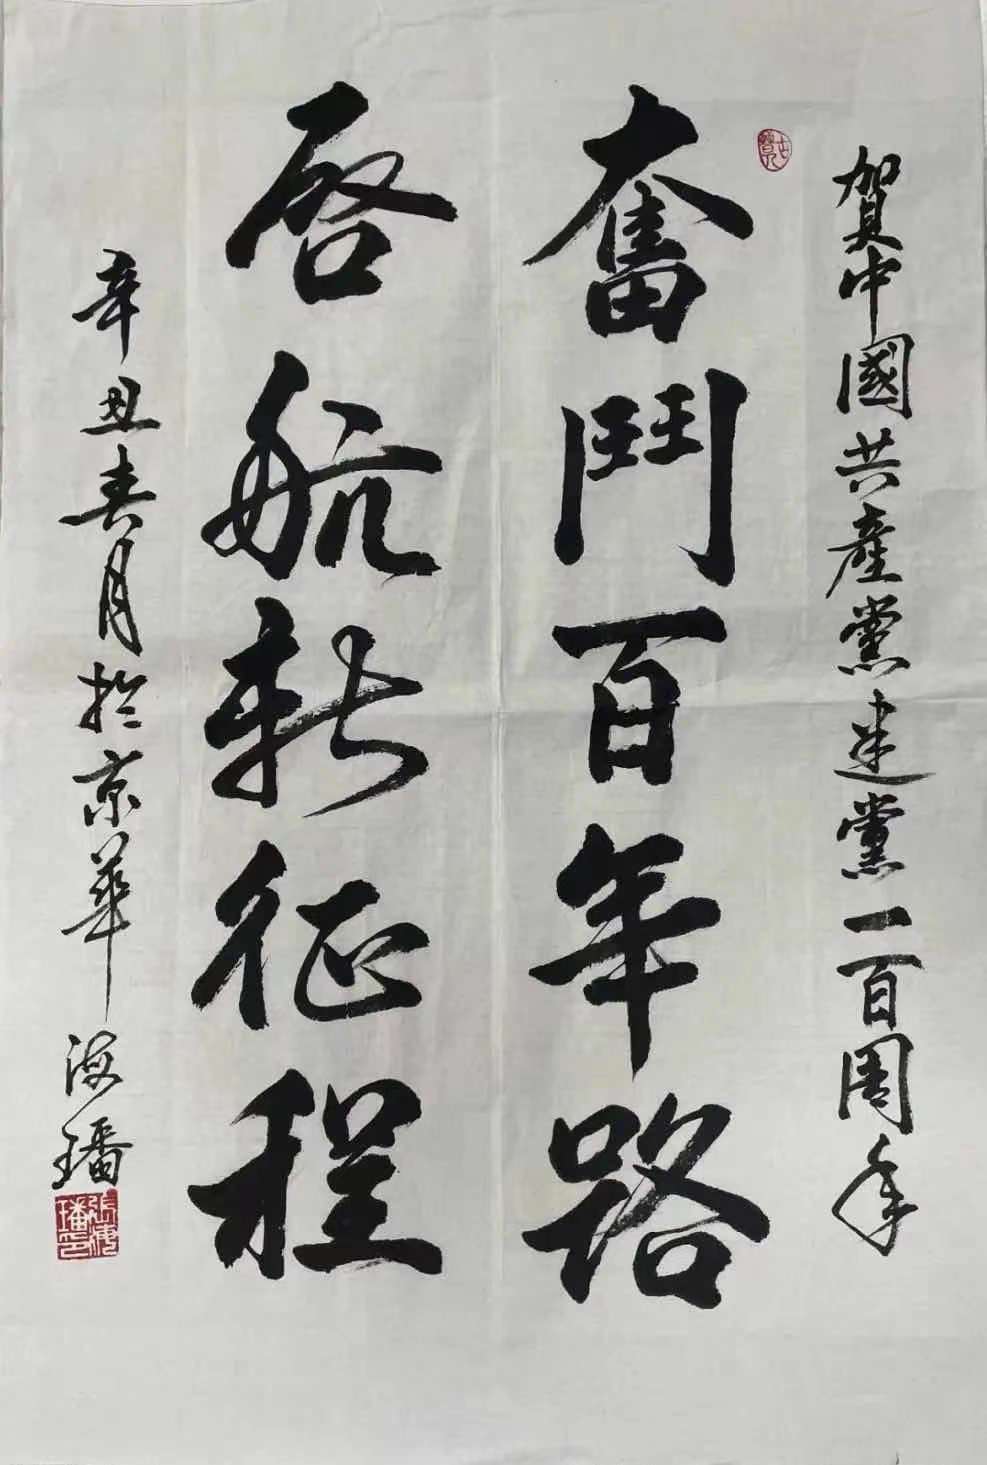 賀中國共產黨建黨一百周年
奮鬥百年路
啓航新征程
辛丑春月於京華 海璠
張海璠印